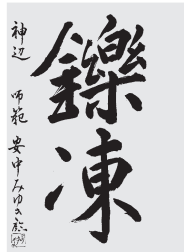 鑠凍
神辺 師範 安中みゆき